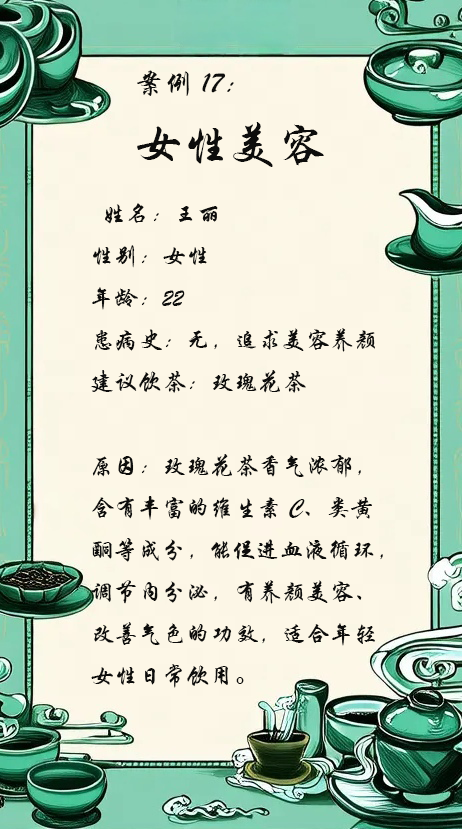 案例 17：
女性美容
姓名：王丽
性别：女性
年龄：22
患病史：无，追求美容养颜
建议饮茶：玫瑰花茶
原因：玫瑰花茶香气浓郁，
含有丰富的维生素 C、类黄
酮等成分，能促进血液循环，
调节内分泌，有养颜美容、
改善气色的功效，适合年轻
女性日常饮用。